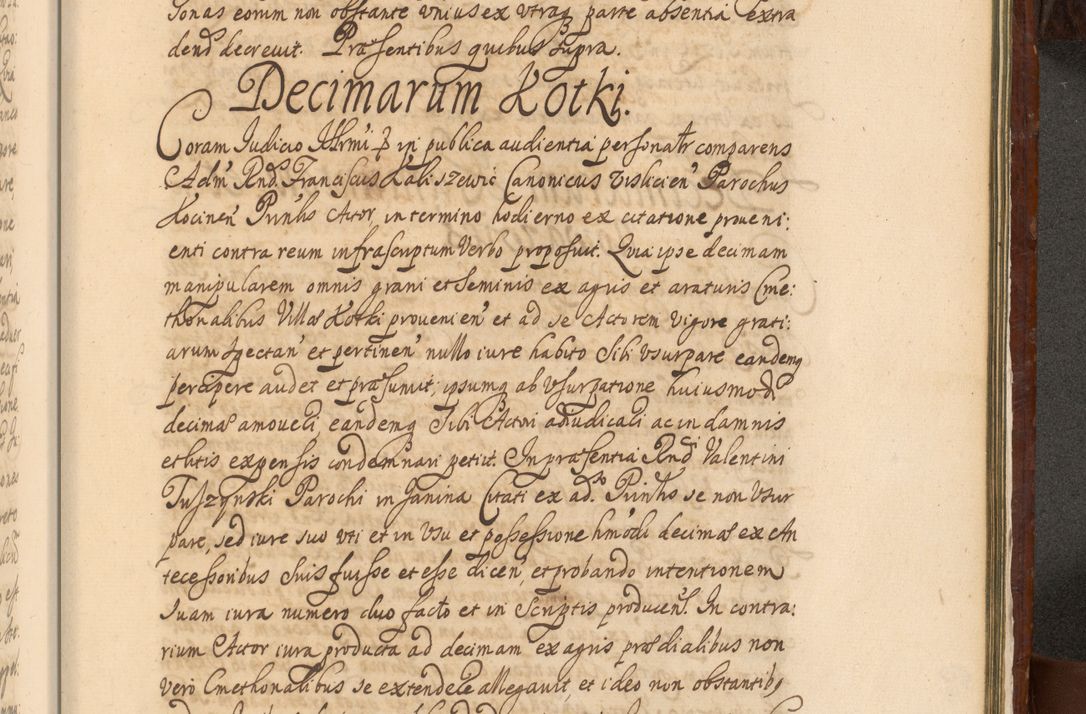 sonas eorum non obstante unius ex utraq parte absentia extra
dend decrevit. Præsentibus quibus supra.
Decimarum Kotki.
Coram Iudicio in publica audientia personatr comparens
Adm Rnd Franciscus Kaliszewic Canonicus Vislicien Parochus
Kocinen Prinlis Actor, in termino hodierno ex citatione proveni:
enti contra reum infrascriptum Verbo proposuit. Quia ipse decimam
manipularem omnis grani et seminis ex agris et araturis Cme:
thonalibus Villæ Kotki provenien et ad se Actorem vigore grati:
arum spectan et pertinen nullo iure habito sibi usurpare eandemq
percipere audet et præsumit; ipsumq ab usurpatione huiusmodi
decimæ amoveri eandemq sibi Actori adiudicari ac in damnis
et litis expensis condemnari petiit. In præsentia Rndi Valentini
Tuszynski Parochi in Janina Citati ex ad.so Prinlis se non usur
pare, sed iure suo uti et in usu et possessione hmodi decimæ ex An
tecessoribus suis fuisse et esse dicen, et probando intentionem
suam iura numero duo facto et in scriptis producen. In contra:
rium Actor iura producta ad decimam ex agris prædialibus non
vero Cmethonalibus se extendere allegavit, et ideo non obstantibq